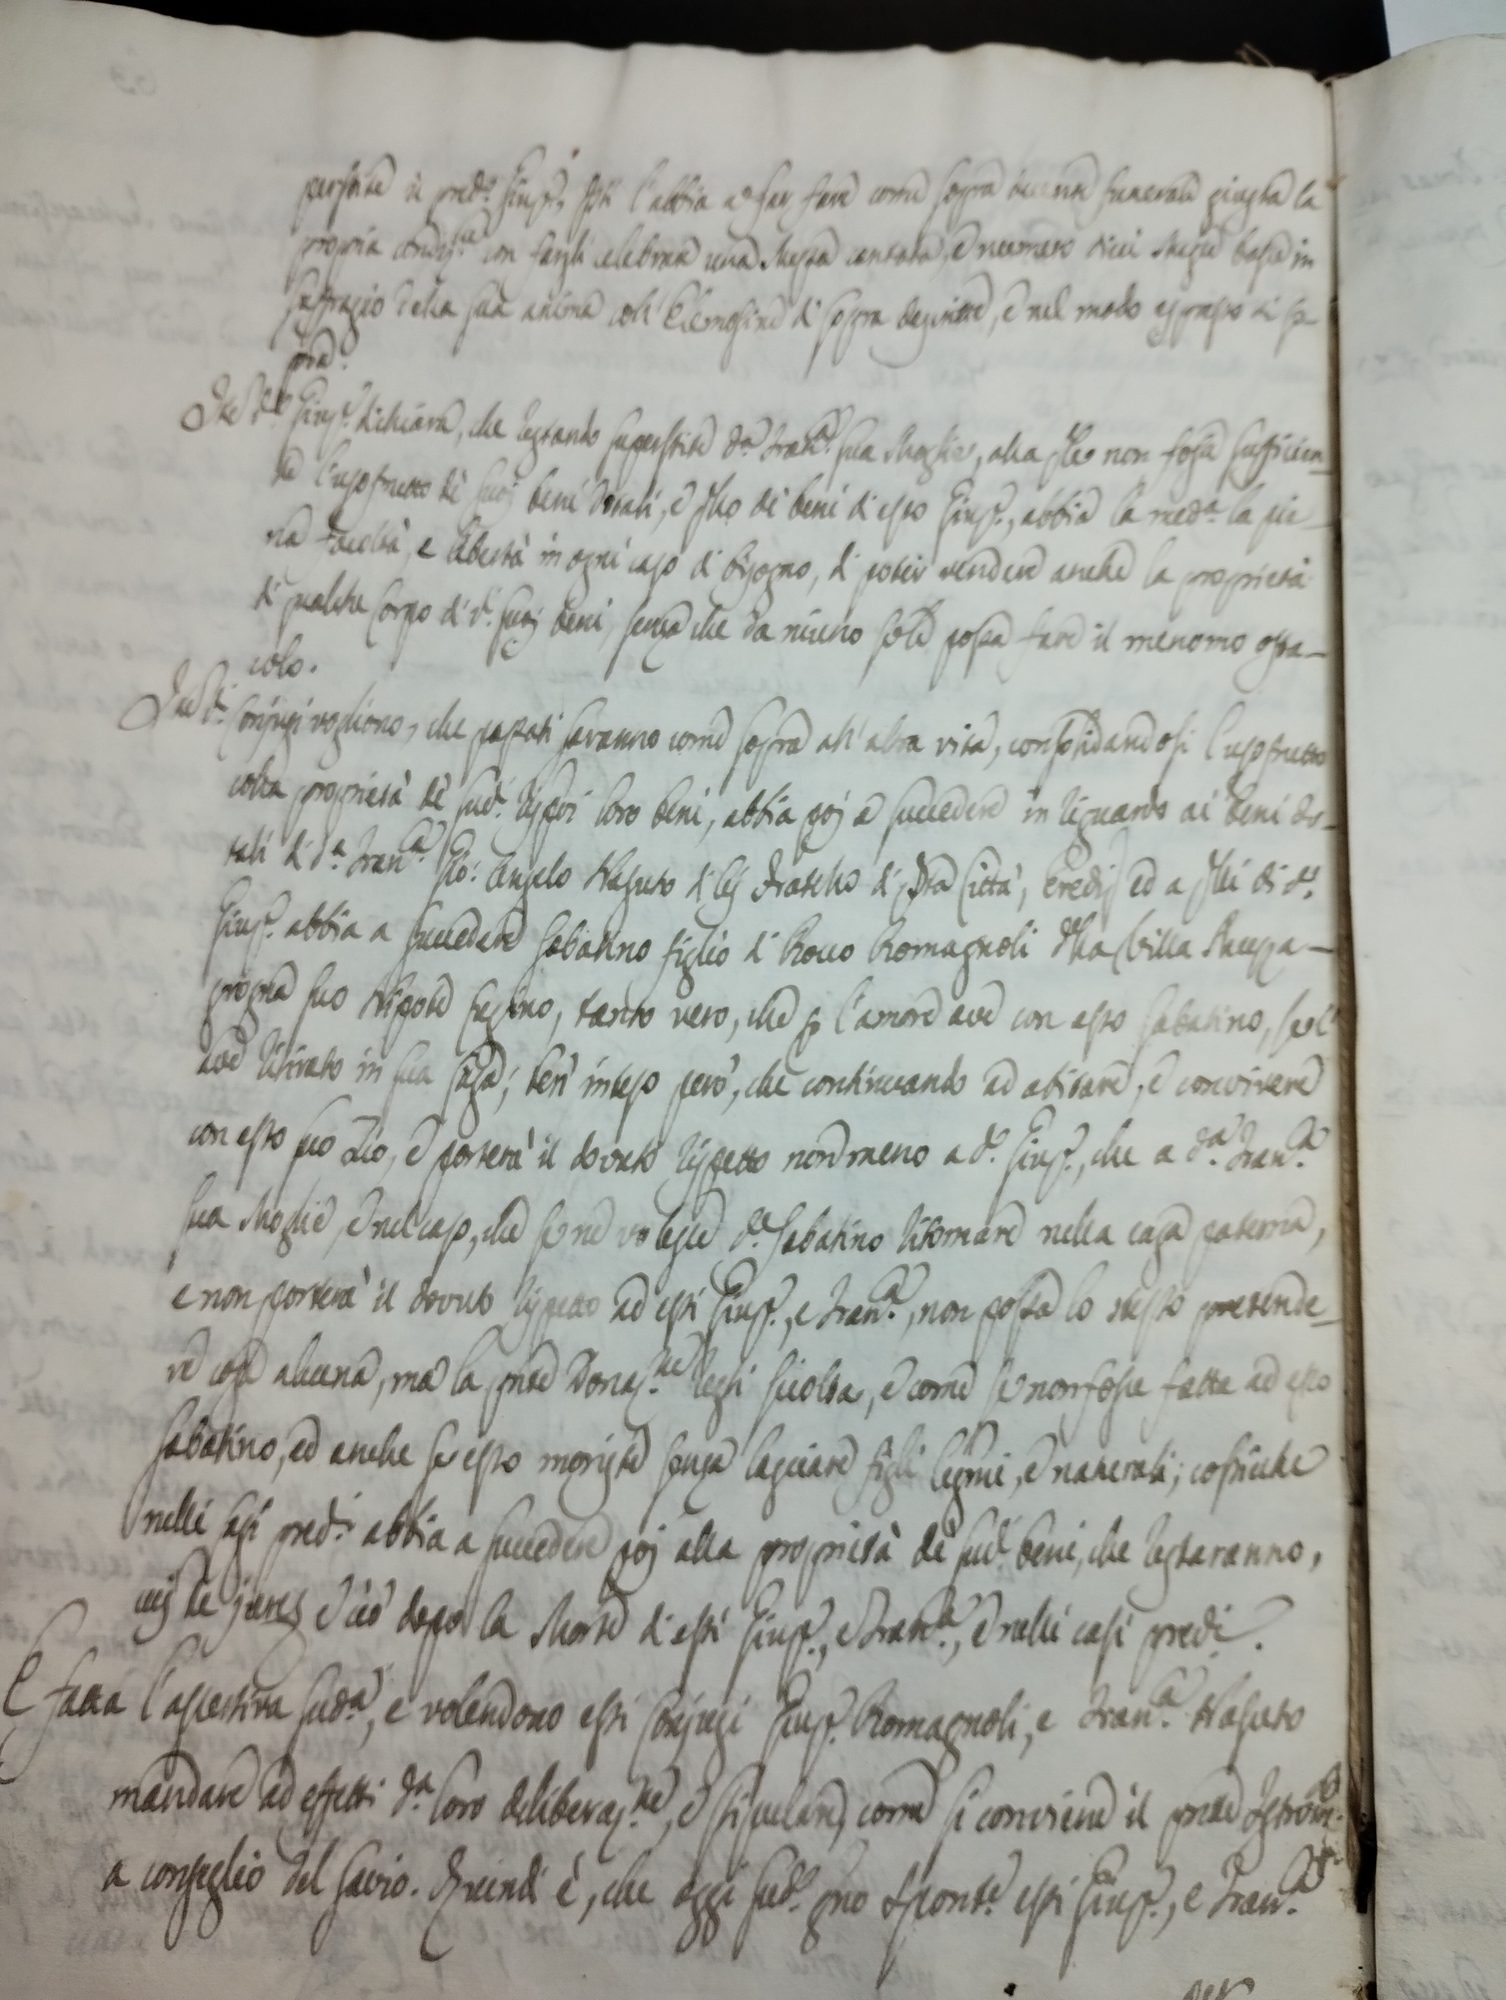 perstite il pred.º Gius.e, esti l'abbia a far fare come sopra decente funerale giusta la
propria condiz.ne con fargli celebrare una Messa cantata, e numero dieci Messe basse in
suffragio della sua anima coll'Elemosine di sopra descritte, e nel modo espresso di so-
pra.
Che d.º Gius.e dichiara, che restando superstite d.a Fran.ca sua Moglie, alla q̃le non fosse sufficien-
te l'usofrutto de' suoi beni dotali, e q̃llo de' beni di esso Gius.e, abbia la med.a la pie-
na facoltà, e libertà in ogni caso di bisogno, di poter vendere anche la proprietà
di qualche corpo di d.i suoi beni, senza che da niuno se le possa fare il menomo osta-
colo.
Che d.i Conjugi vogliono, che passati saranno come sopra all'altra vita, consolidandosi l'usofrutto
colla proprietà de' sud.i rispvi loro beni, abbia poi a succedere in riguardo ai beni do-
tali di d.a Fran.ca Gio: Angelo Nasuto di lei Fratello di q̃sta Città, Eredi ed a q̃lli di d.º
Gius.e abbia a succedere Sabatino figlio di Rocco Romagnoli della Villa Mazza-
grogna suo Nipote, tanto vero, che p l'amore ave con esso Sabatino, se l'
ave ritirato in sua Casa; ben inteso però, che continuando ad abitare, e convivere
con esso suo Zio, e porterà il dovuto rispetto nonmeno a d.º Gius.e, che a d.a Fran.ca
sua Moglie e nel caso, che se ne volesse d.º Sabatino ritornare nella casa paterna,
e non porterà il dovuto rispetto ad essi Gius.e, e Fran.ca, non possa lo stesso pretende-
re cosa alcuna, ma la pñte Donaz.ne resti sciolta, e come se non fosse fatta ad esso
Sabatino, ed anche se esso morisse senza lasciare figli legmi, e naturali; cosicche
nelli casi pred.i abbia a succedere poi alla proprietà de' sud.i beni, che resteranno,
cui de jure, e ciò dopo la Morte di essi Gius.e, e Fran.ca, e nelli casi predi.
E fatta l'assertiva sud.a, e volendono essi Conjugi Gius.e Romagnoli, e Fran.ca Nasuto
mandare ad effetti d.a loro deliberaz.ne, e stipularne, come si conviene il pñte Istrom.to
a conseglio del Savio. Quindi è, che oggi sud.º gno sponte essi Gius.e, e Fran.ca